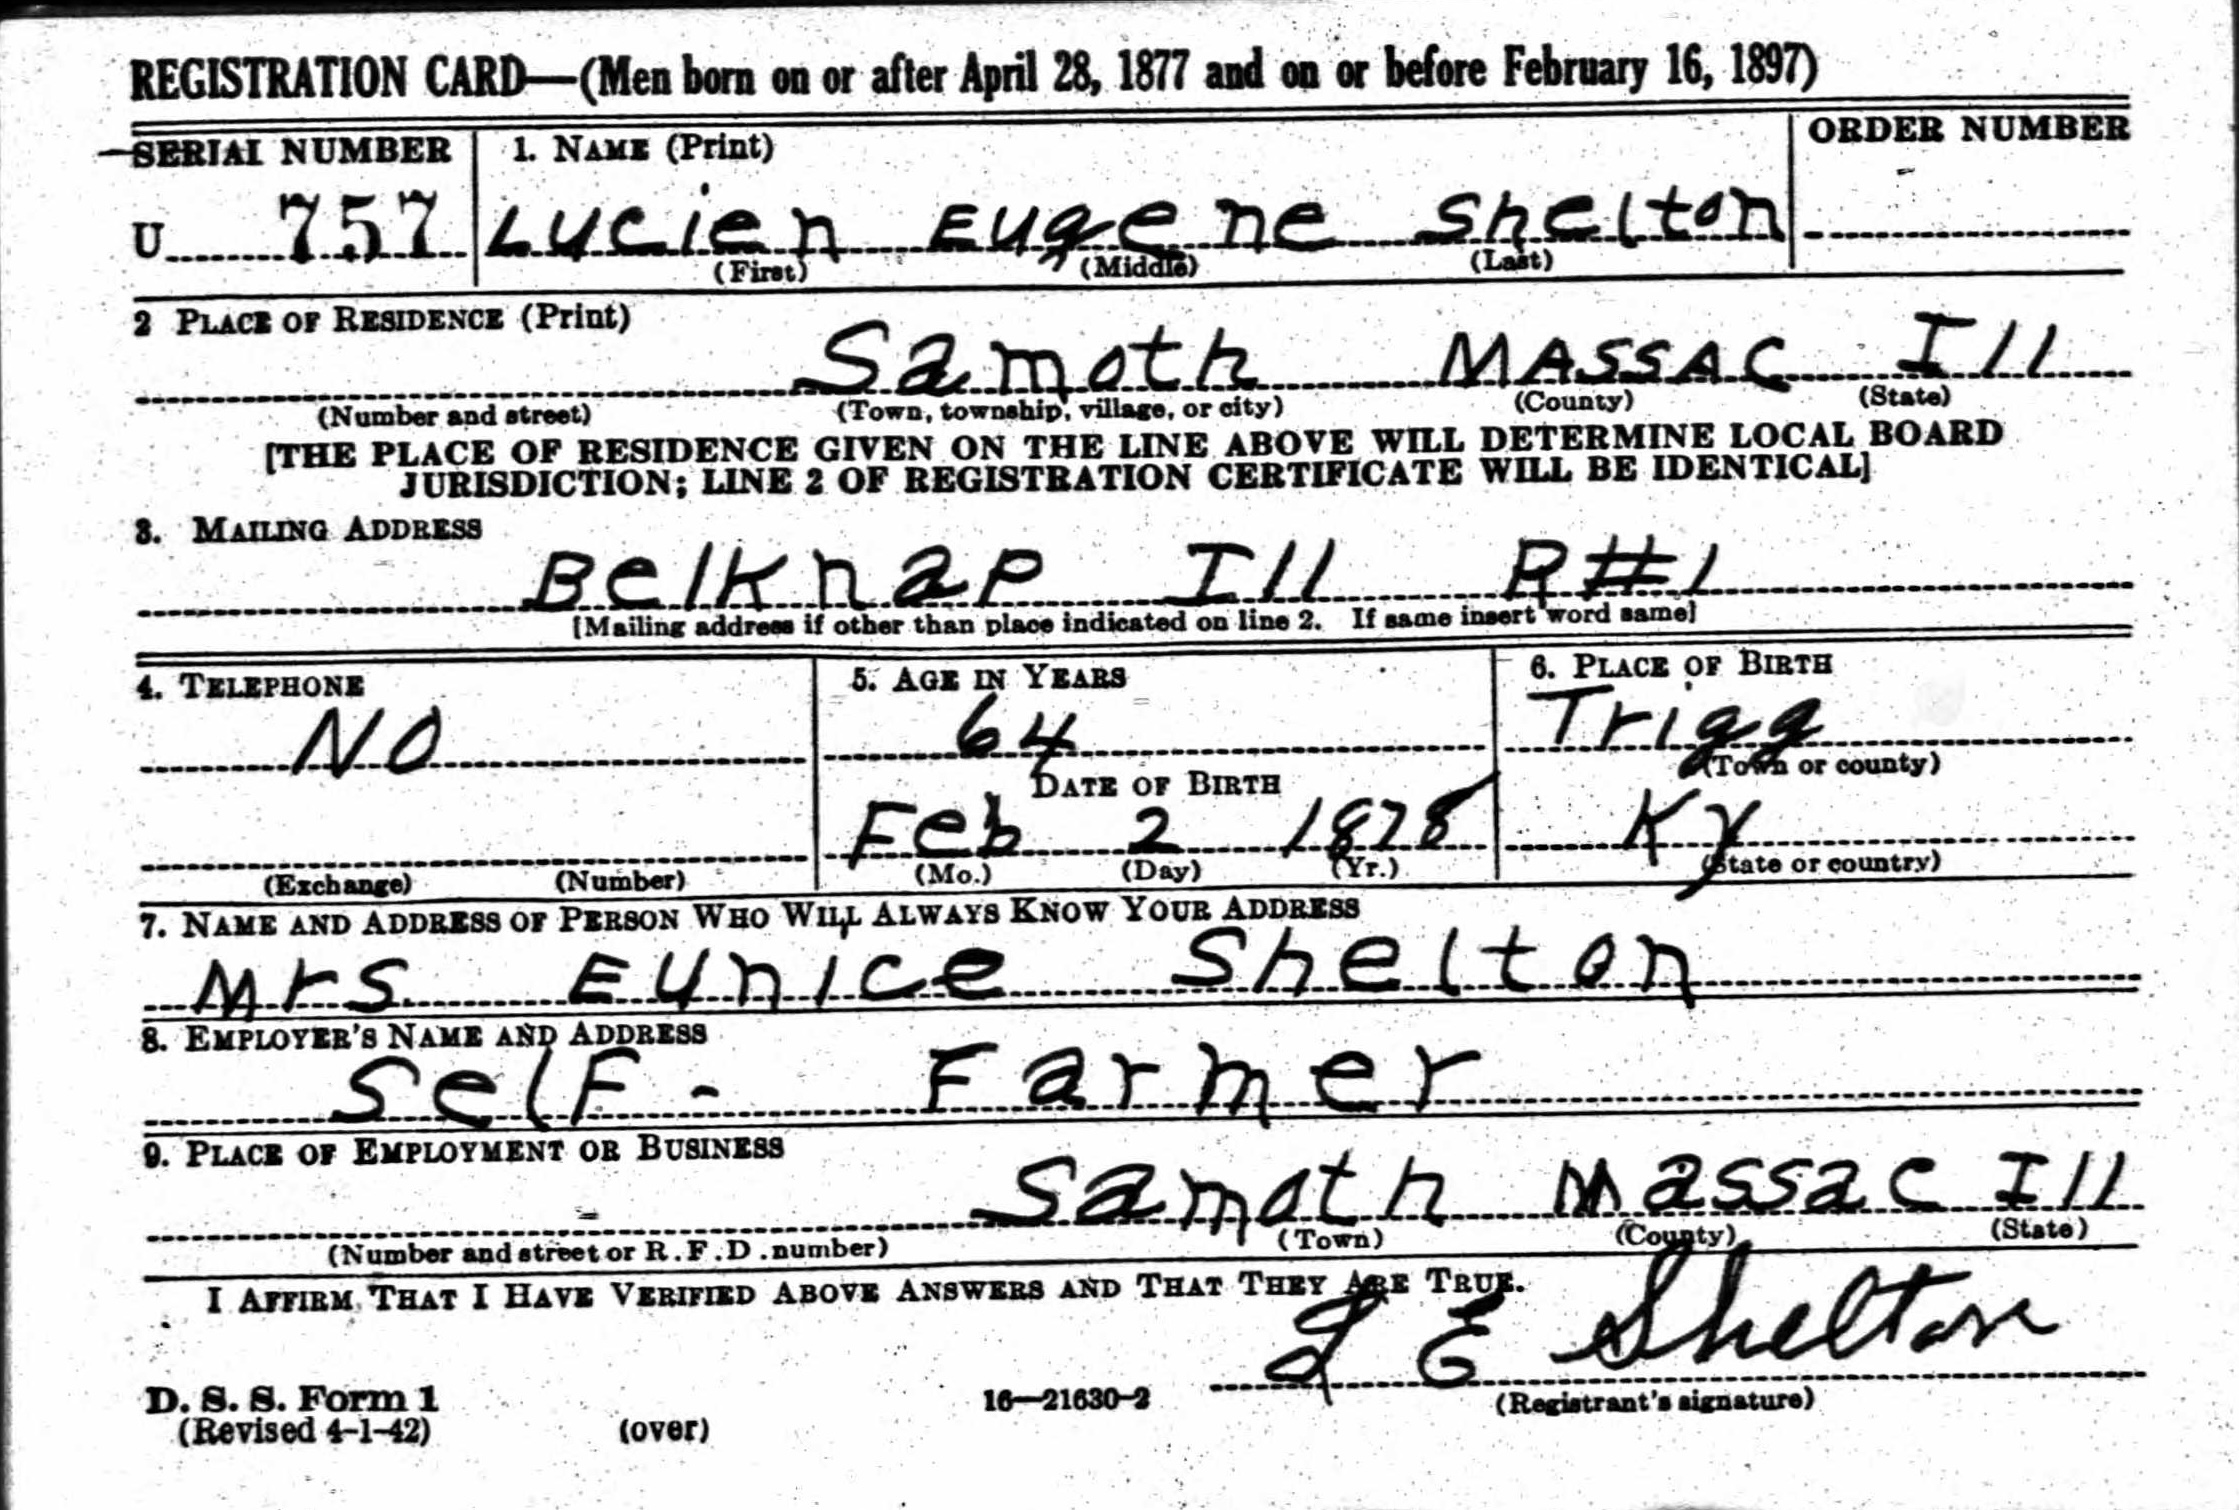 REGISTRATION CARD—(Men born on or after April 28, 1877 and on or before February 16, 1897)
SERIAL NUMBER 1. NAME (Print) ORDER NUMBER
U 757 Lucien Eugene Shelton
(First) (Middle) (Last)
2 PLACE OF RESIDENCE (Print)
Samoth MASSAC Ill
(Number and street) (Town, township, village, or city) (County) (State)
[THE PLACE OF RESIDENCE GIVEN ON THE LINE ABOVE WILL DETERMINE LOCAL BOARD
JURISDICTION; LINE 2 OF REGISTRATION CERTIFICATE WILL BE IDENTICAL]
3. MAILING ADDRESS
Belknap Ill R#1
[Mailing address if other than place indicated on line 2. If same insert word same]
4. TELEPHONE 5. AGE IN YEARS 6. PLACE OF BIRTH
NO 64 Trigg
DATE OF BIRTH (Town or county)
Feb 2 1878 Ky
(Exchange) (Number) (Mo.) (Day) (Yr.) (State or country)
7. NAME AND ADDRESS OF PERSON WHO WILL ALWAYS KNOW YOUR ADDRESS
Mrs Eunice Shelton
8. EMPLOYER'S NAME AND ADDRESS
Self - Farmer
9. PLACE OF EMPLOYMENT OR BUSINESS
Samoth Massac Ill
(Number and street or R.F.D. number) (Town) (County) (State)
I AFFIRM THAT I HAVE VERIFIED ABOVE ANSWERS AND THAT THEY ARE TRUE.
L E Shelton
D. S. S. Form 1 16—21630-2 (Registrant's signature)
(Revised 4-1-42) (over)